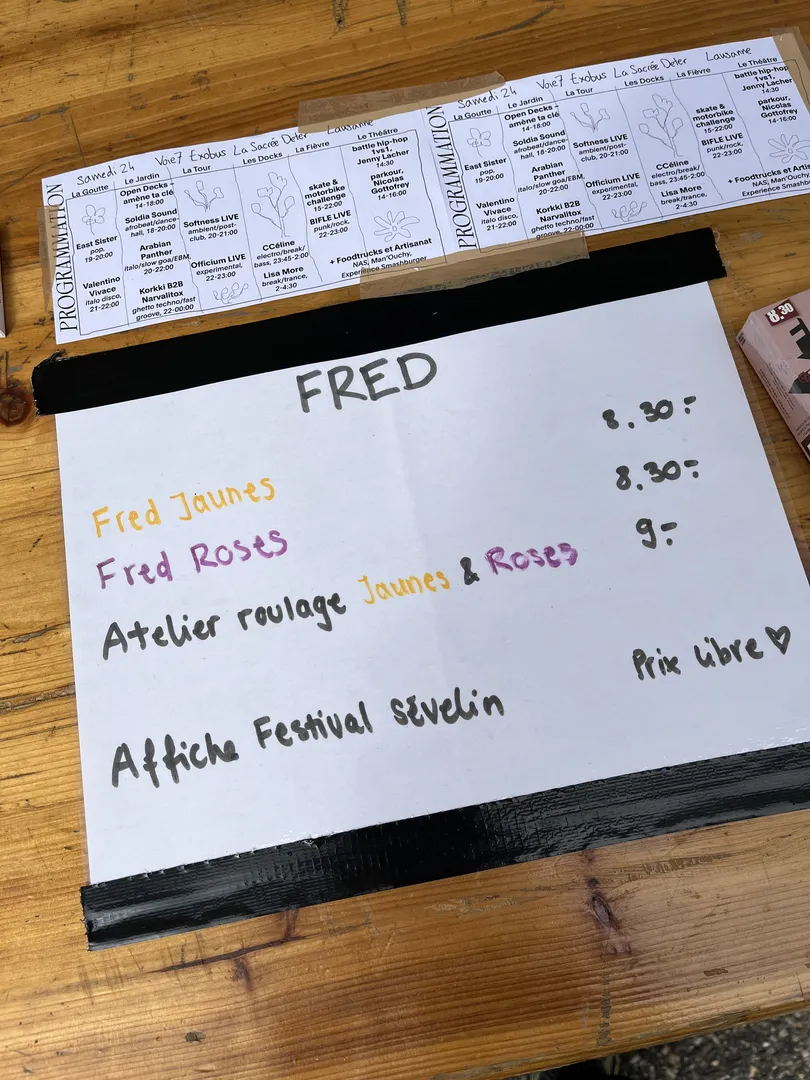 PROGRAMMATION
Samedi 24 Voie7 Exobus La Sacrée Deter Lausanne
La Goutte
East Sister
pop,
19-20:00
Valentino
Vivace
italo disco,
21-22:00
Le Jardin
Open Decks –
amène ta clé
14-18:00
Soldia Sound
afrobeat/dance-
hall, 18-20:00
Arabian
Panther
italo/slow goa/EBM,
20-22:00
Korkki B2B
Narvalitox
ghetto techno/fast
groove, 22-00:00
La Tour
Softness LIVE
ambient/post-
club, 20-21:00
Officium LIVE
experimental,
22-23:00
Les Docks
CCéline
electro/break/
bass, 23:45-2:00
Lisa More
break/trance,
2-4:30
La Fièvre
skate &
motorbike
challenge
15-22:00
BIFLE LIVE
punk/rock,
22-23:00
Le Théâtre
battle hip-hop
1vs1,
Jenny Lacher
14:30
parkour,
Nicolas
Gottofrey
14-16:00
+ Foodtrucks et Artisanat
NAS, Man'Ouchy,
Experience Smashburger
PROGRAMMATION
Samedi 24 Voie7 Exobus La Sacrée Deter Lausanne
La Goutte
East Sister
pop,
19-20:00
Valentino
Vivace
italo disco,
21-22:00
Le Jardin
Open Decks –
amène ta clé
14-18:00
Soldia Sound
afrobeat/dance-
hall, 18-20:00
Arabian
Panther
italo/slow goa/EBM,
20-22:00
Korkki B2B
Narvalitox
ghetto techno/fast
groove, 22-00:00
La Tour
Softness LIVE
ambient/post-
club, 20-21:00
Officium LIVE
experimental,
22-23:00
Les Docks
CCéline
electro/break/
bass, 23:45-2:00
Lisa More
break/trance,
2-4:30
La Fièvre
skate &
motorbike
challenge
15-22:00
BIFLE LIVE
punk/rock,
22-23:00
Le Théâtre
battle hip-hop
1vs1,
Jenny Lacher
14:30
parkour,
Nicolas
Gottofrey
14-16:00
+ Foodtrucks et Artis
NAS, Man'Ouchy,
Experience Smashburger
8.30
FRED
Fred Jaunes 8.30.-
Fred Roses 8.30.-
Atelier roulage Jaunes & Roses 9.-
Affiche Festival sévelin Prix libre ♡